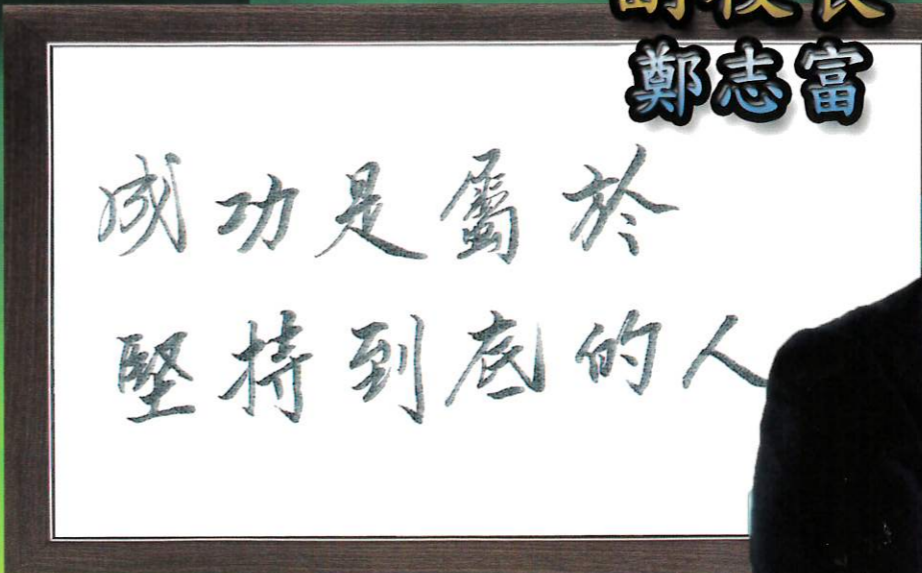 副校長
鄭志富
成功是屬於
堅持到底的人